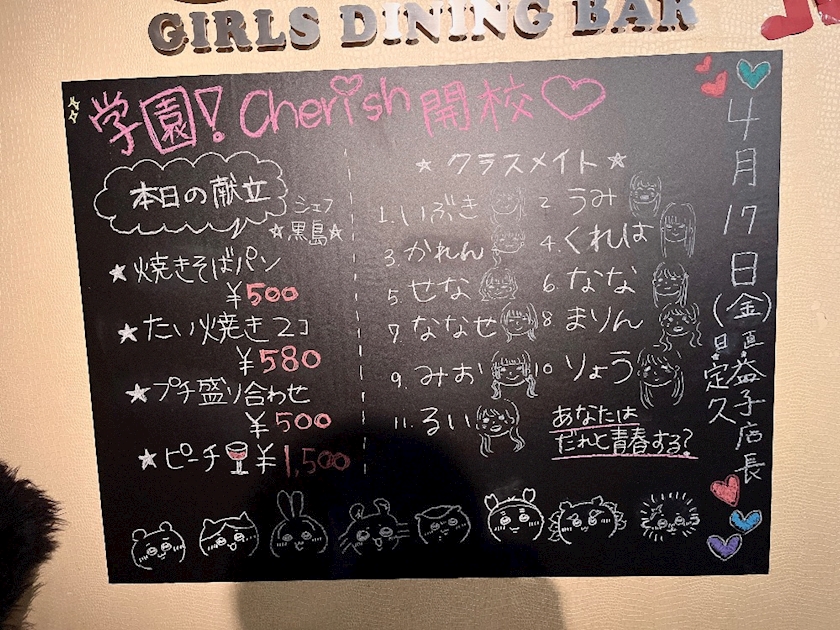 GIRLS DINING BAR
学園! Cherish 開校♡
4月17日(金)
日直・益子店長
定久
本日の献立
シェフ
☆黒島☆
★焼きそばパン
¥500
★たい焼き2コ
¥580
★プチ盛り合わせ
¥500
★ピーチ ¥1,500
★クラスメイト★
1.いぶき 2 うみ
3 かれん 4.くれは
5 せな 6.なな
7 ななせ 8 まりん
9.みお 10 りょう
11.るい
あなたは
だれと青春する?